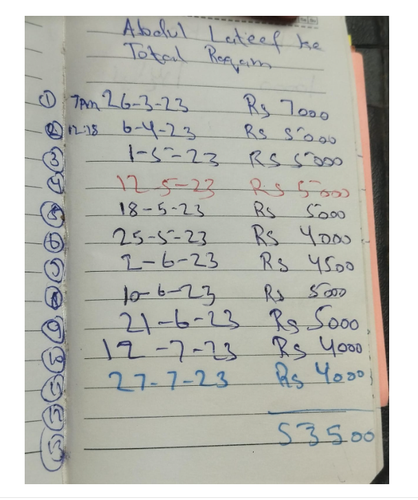 Abdul Lateef ke
Total Raqam
① 7AM 26-3-23 Rs 7000
② 12:18 6-4-23 Rs 5000
③ 1-5-23 Rs 5000
④ 12-5-23 Rs 5000
⑤ 18-5-23 Rs 5000
⑥ 25-5-23 Rs 4000
⑦ 2-6-23 Rs 4500
⑧ 10-6-23 Rs 5000
⑨ 21-6-23 Rs 5000
12-7-23 Rs 4000
27-7-23 Rs 4000
53500